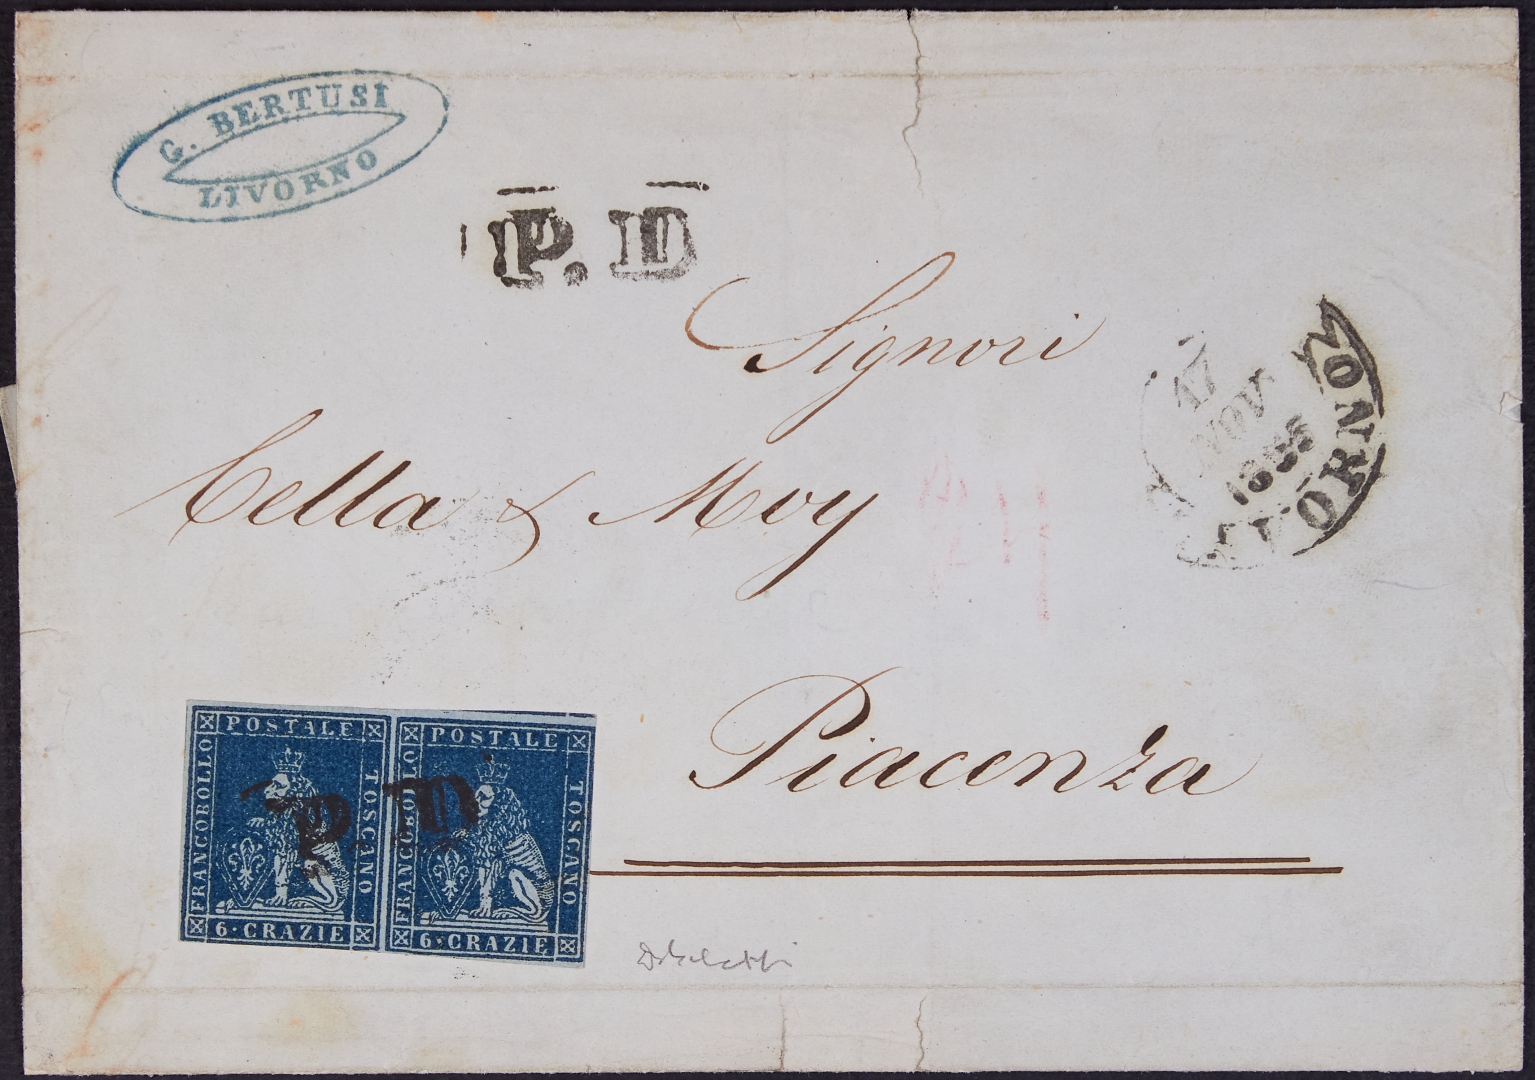 G. BERTUSI
LIVORNO
P.D
Signori
17
NOV
1855
LIVORNO
Cella & Moy
Piacenza
POSTALE
FRANCOBOLLO
TOSCANO
6·CRAZIE
POSTALE
FRANCOBOLLO
TOSCANO
6·CRAZIE
P.D